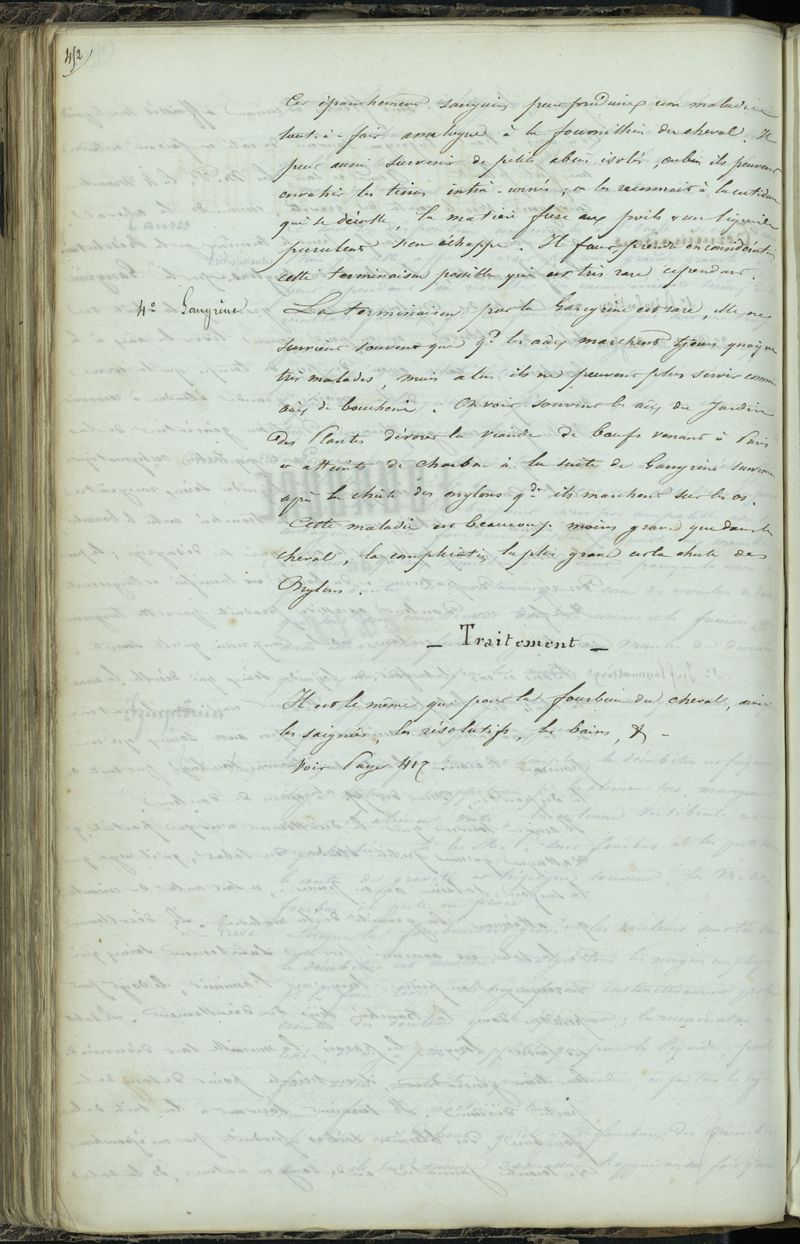 452
Cet épanchement sanguin peut produire une maladie
tout-à-fait analogue à la fourmilière du cheval. Il
peut aussi survenir de petits abcès isolés, ou bien ils peuvent
envahir les tissus intra-cornés ; on les reconnaît à la cutidure
qui se décolle, la matière fuse aux poils & un liquide
purulent s'en échappe. Il faut prendre en considération
cette terminaison possible qui est très rare cependant.
4º Gangrène La terminaison par la Gangrène est rare, elle ne
survient souvent que qd les aux marchent tjours quoique
très malades, mais alors ils ne peuvent plus servir comme
aux de boucherie. On voit souvent les aux du Jardin
des Plantes dévorer la viande de bœufs venant à Paris
et atteints de charbon à la suite de Gangrène survenue
après la chute des onglons qd ils marchent sur les os.
Cette maladie est beaucoup moins grave que dans le
cheval, la complication la plus grave est la chute des
Onglons.
— Traitement —
Il est le même que pour la fourbure du cheval, ainsi
les saignées, les résolutifs, les bains, &
Voir Page 417.